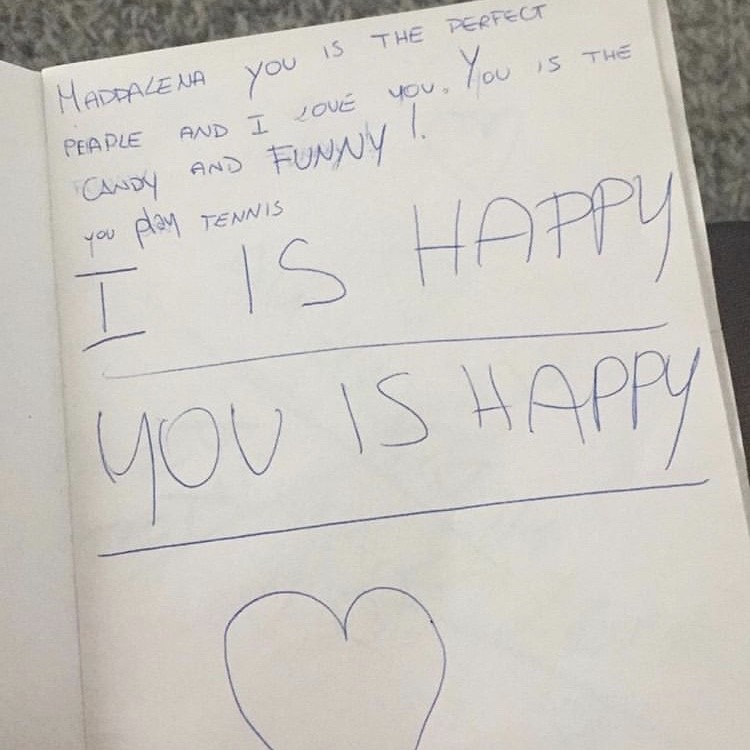 MADDALENA YOU IS THE PERFECT
PEAPLE AND I LOVE YOU. YOU IS THE
CANDY AND FUNNY!
YOU play TENNIS
I IS HAPPY
YOU IS HAPPY